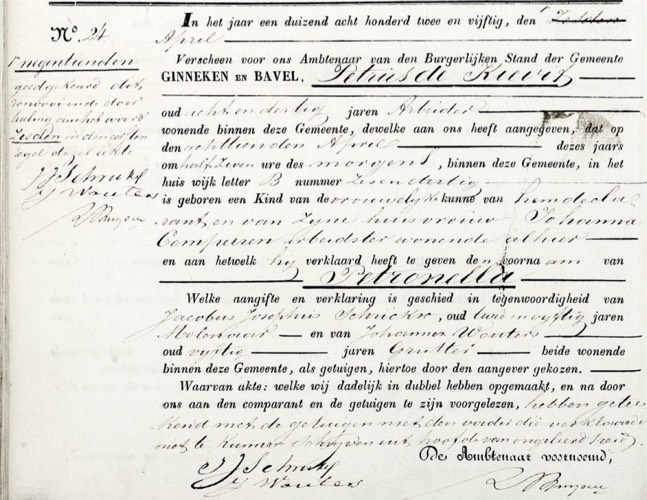 No. 24
In het jaar een duizend acht honderd twee en vijftig, den
April
Verscheen voor ons Ambtenaar van den Burgerlijken Stand der Gemeente
GINNEKEN EN BAVEL, Petrus de Kievit
oud acht en dertig jaren Arbeider
wonende binnen deze Gemeente, dewelke aan ons heeft aangegeven, dat op
den achttienden April dezes jaars
om half zeven ure des morgens, binnen deze Gemeente, in het
huis wijk letter B nummer zeven dertig
is geboren een Kind van de vrouwelijke kunne van hem decla-
rant en van zyne huisvrouw Johanna
Arbeidster wonende alhier
en aan hetwelk hy verklaard heeft te geven den voorna am van
Petronella
Welke aangifte en verklaring is geschied in tegenwoordigheid van
Jacobus Josephus oud twee en vyftig jaren
Molenaar en van Johannes Wouters
oud vyftig jaren Grutter beide wonende
binnen deze Gemeente, als getuigen, hiertoe door den aangever gekozen.
Waarvan akte: welke wij dadelijk in dubbel hebben opgemaakt, en na door
ons aan den comparant en de getuigen te zijn voorgelezen, hebben getee
kend met de getuigen met den vader die verklaarde
niet te kunnen schryven uit hoofde van ongeleerdheid.
De Ambtenaar voornoemd,
J Wouters
negentienden
goedgekeurd de
door
haling van het woord
Zesden in den
regel dezer akte
J Wouters